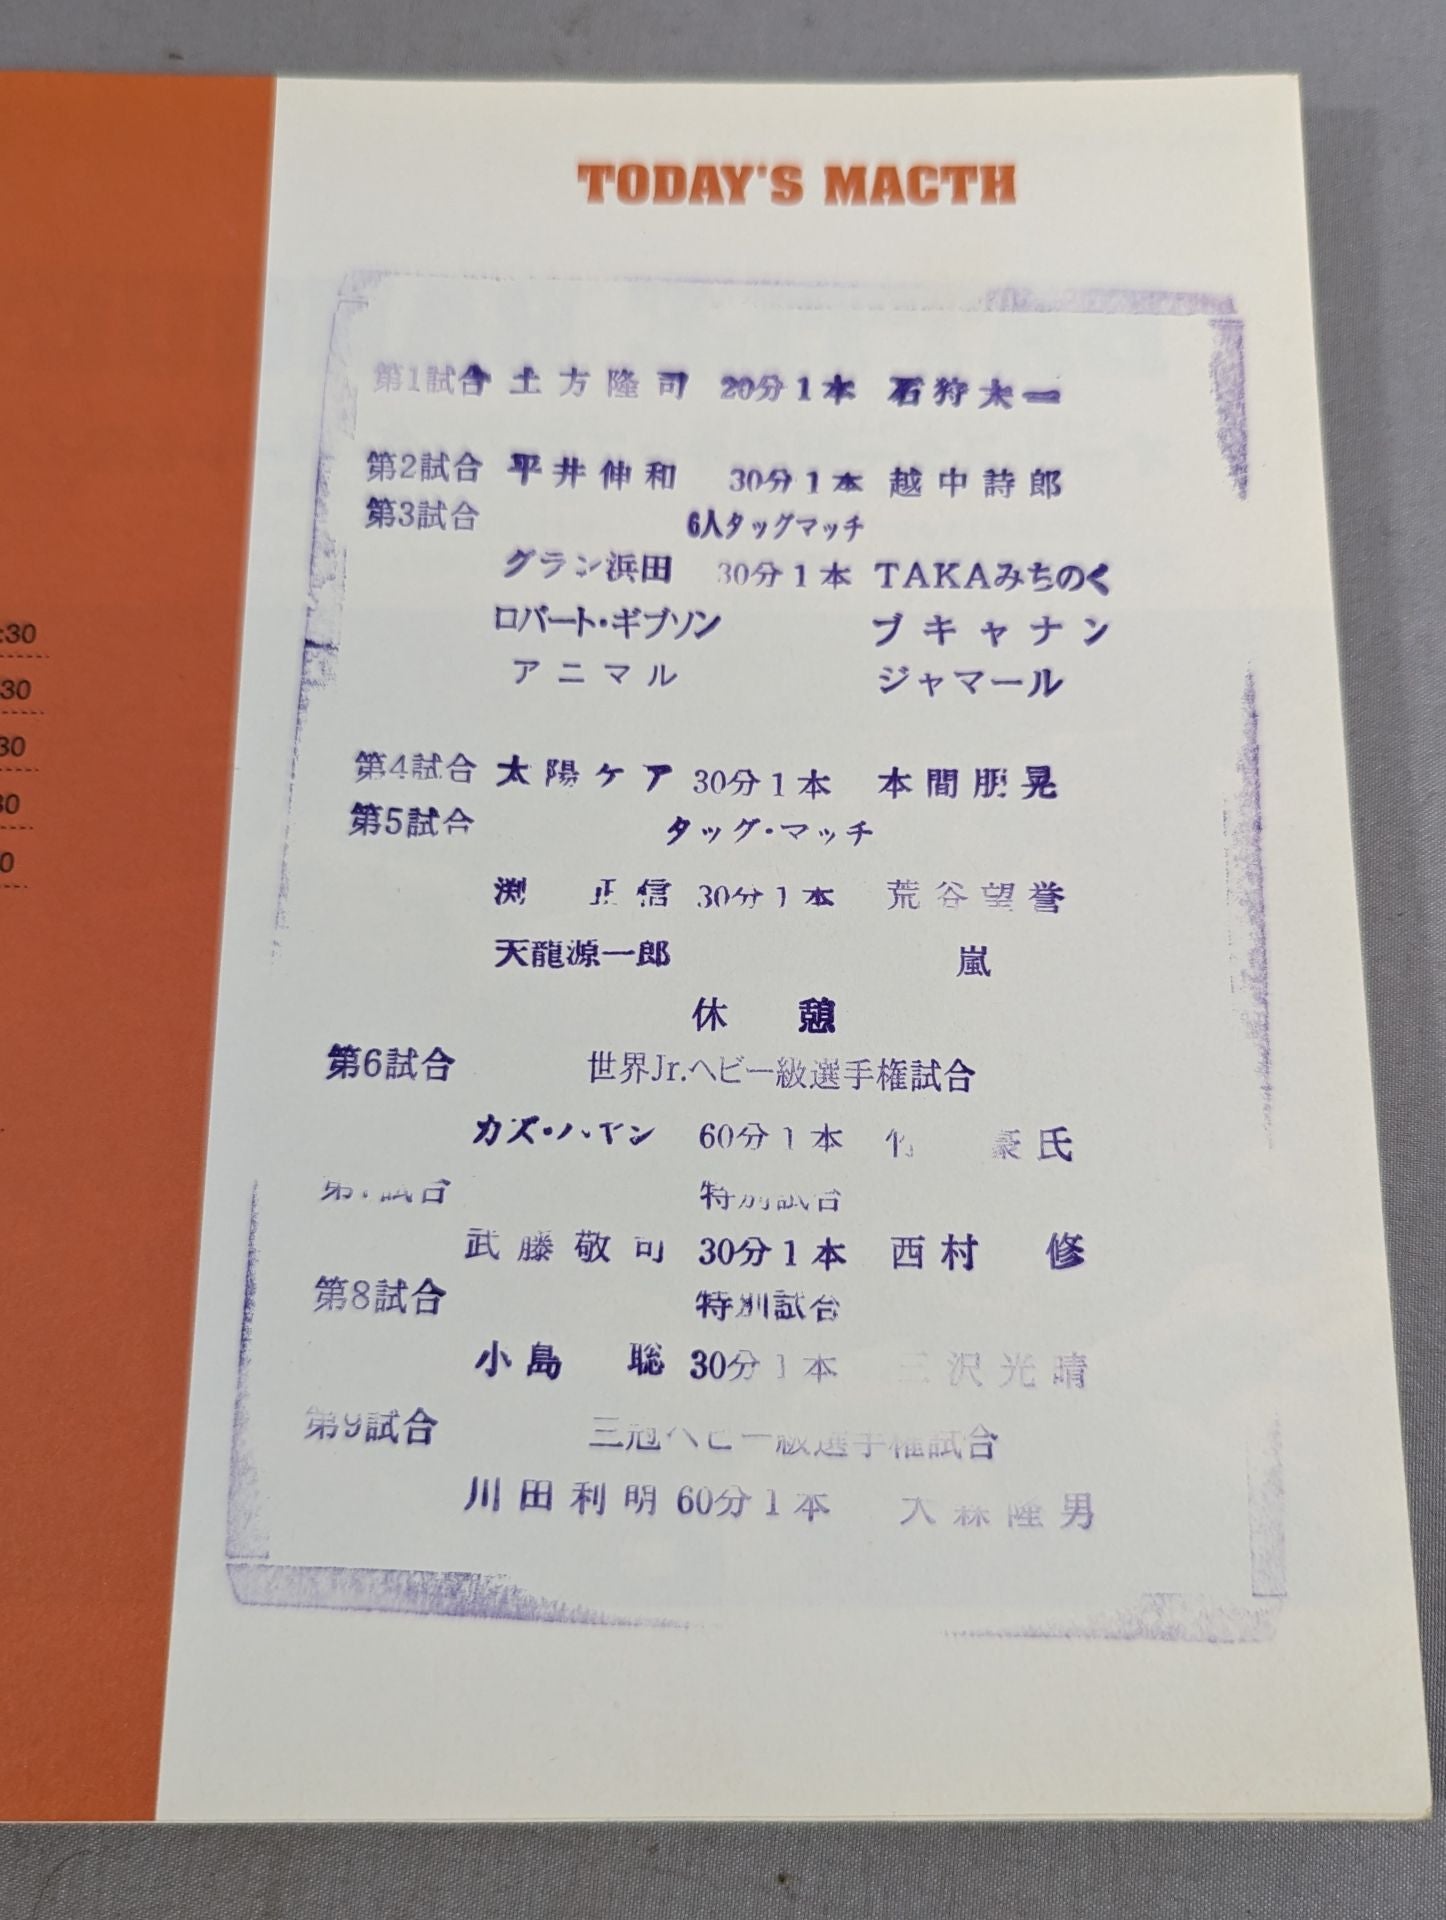 TODAY'S MACTH
第1試合 土方隆司 20分1本 石狩太一
第2試合 平井伸和 30分1本 越中詩郎
第3試合 6人タッグマッチ
グラン浜田 30分1本 TAKAみちのく
ロバート・ギブソン ブキャナン
アニマル ジャマール
第4試合 太陽ケア 30分1本 本間朋晃
第5試合 タッグ・マッチ
渕 正信 30分1本 荒谷望誉
天龍源一郎 嵐
休 憩
第6試合 世界Jr.ヘビー級選手権試合
カズ・ハヤシ 60分1本 竹 豪氏
第7試合 特別試合
武藤敬司 30分1本 西村 修
第8試合 特別試合
小島 聡 30分1本 三沢光晴
第9試合 三冠ヘビー級選手権試合
川田利明 60分1本 大森隆男
:30
30
30
30
0